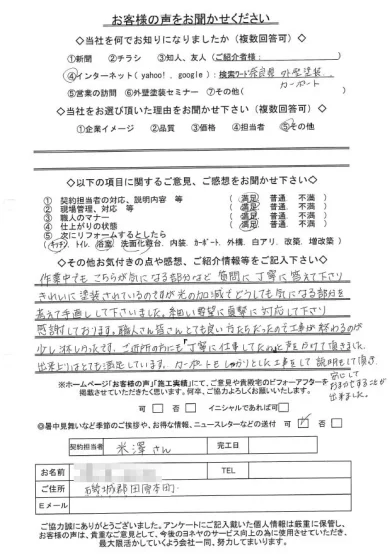 お客様の声をお聞かせください
◇当社を何でお知りになりましたか（複数回答可）◇
①新聞 ②チラシ ③知人、友人（ご紹介者様： ）
④インターネット（yahoo!、google）：検索ワード 奈良県 外壁塗装
カーポート
⑤営業の訪問 ⑥外壁塗装セミナー ⑦その他（ ）
◇当社をお選び頂いた理由をお聞かせ下さい（複数回答可）◇
①企業イメージ ②品質 ③価格 ④担当者 ⑤その他
◇以下の項目に関するご意見、ご感想をお聞かせ下さい◇
① 契約担当者の対応、説明内容 等 （ 満足 普通 不満 ）
② 現場管理、対応 等 （ 満足 普通 不満 ）
③ 職人のマナー （ 満足 普通 不満 ）
④ 仕上がりの状態 （ 満足 普通 不満 ）
⑤ 次にリフォームするとしたら
（キッチン、トイレ、浴室、洗面化粧台、内装、カーポート、外構、白アリ、改築、増改築）
◇その他お気付きの点や感想、ご紹介情報等をご記入下さい◇
作業中でもこちらが気になる部分など質問に丁寧に答えて下さり
きれいに塗装されているのですが光の加減でどうしても気になる部分を
手直しして下さいました。細かい要望に真摯に対応して下さり
感謝しております。職人さん皆さんとても良い方たちだったので工事が終わるのが
少し淋しかったです。ご近所の方にも丁寧に仕事してたねと声をかけて頂きました。
出来上りはとても満足しています。カーポートもしっかりとした工事をして説明をして頂き
安心して
おまかせすることが
出来ました。
※ホームページ「お客様の声」「施工実績」にて、ご意見や貴殿宅のビフォーアフターを
掲載させていただきたく思います。何卒、ご協力よろしくお願いいたします。
可 否 イニシャルであれば可
◎暑中見舞いなど季節のご挨拶や、お得な情報、ニュースレターなどの送付 可 否
契約担当者 米澤さん 完工日
お名前 TEL
ご住所 磯城郡田原本町
Eメール
ご協力誠にありがとうございました。アンケートにご記入戴いた個人情報は厳重に保管し、
お客様の声は、貴重なご意見として、今後のヨネヤのサービス向上の為に使用させていただき、
最大限活かしていくよう会社一同、努力してまいります。